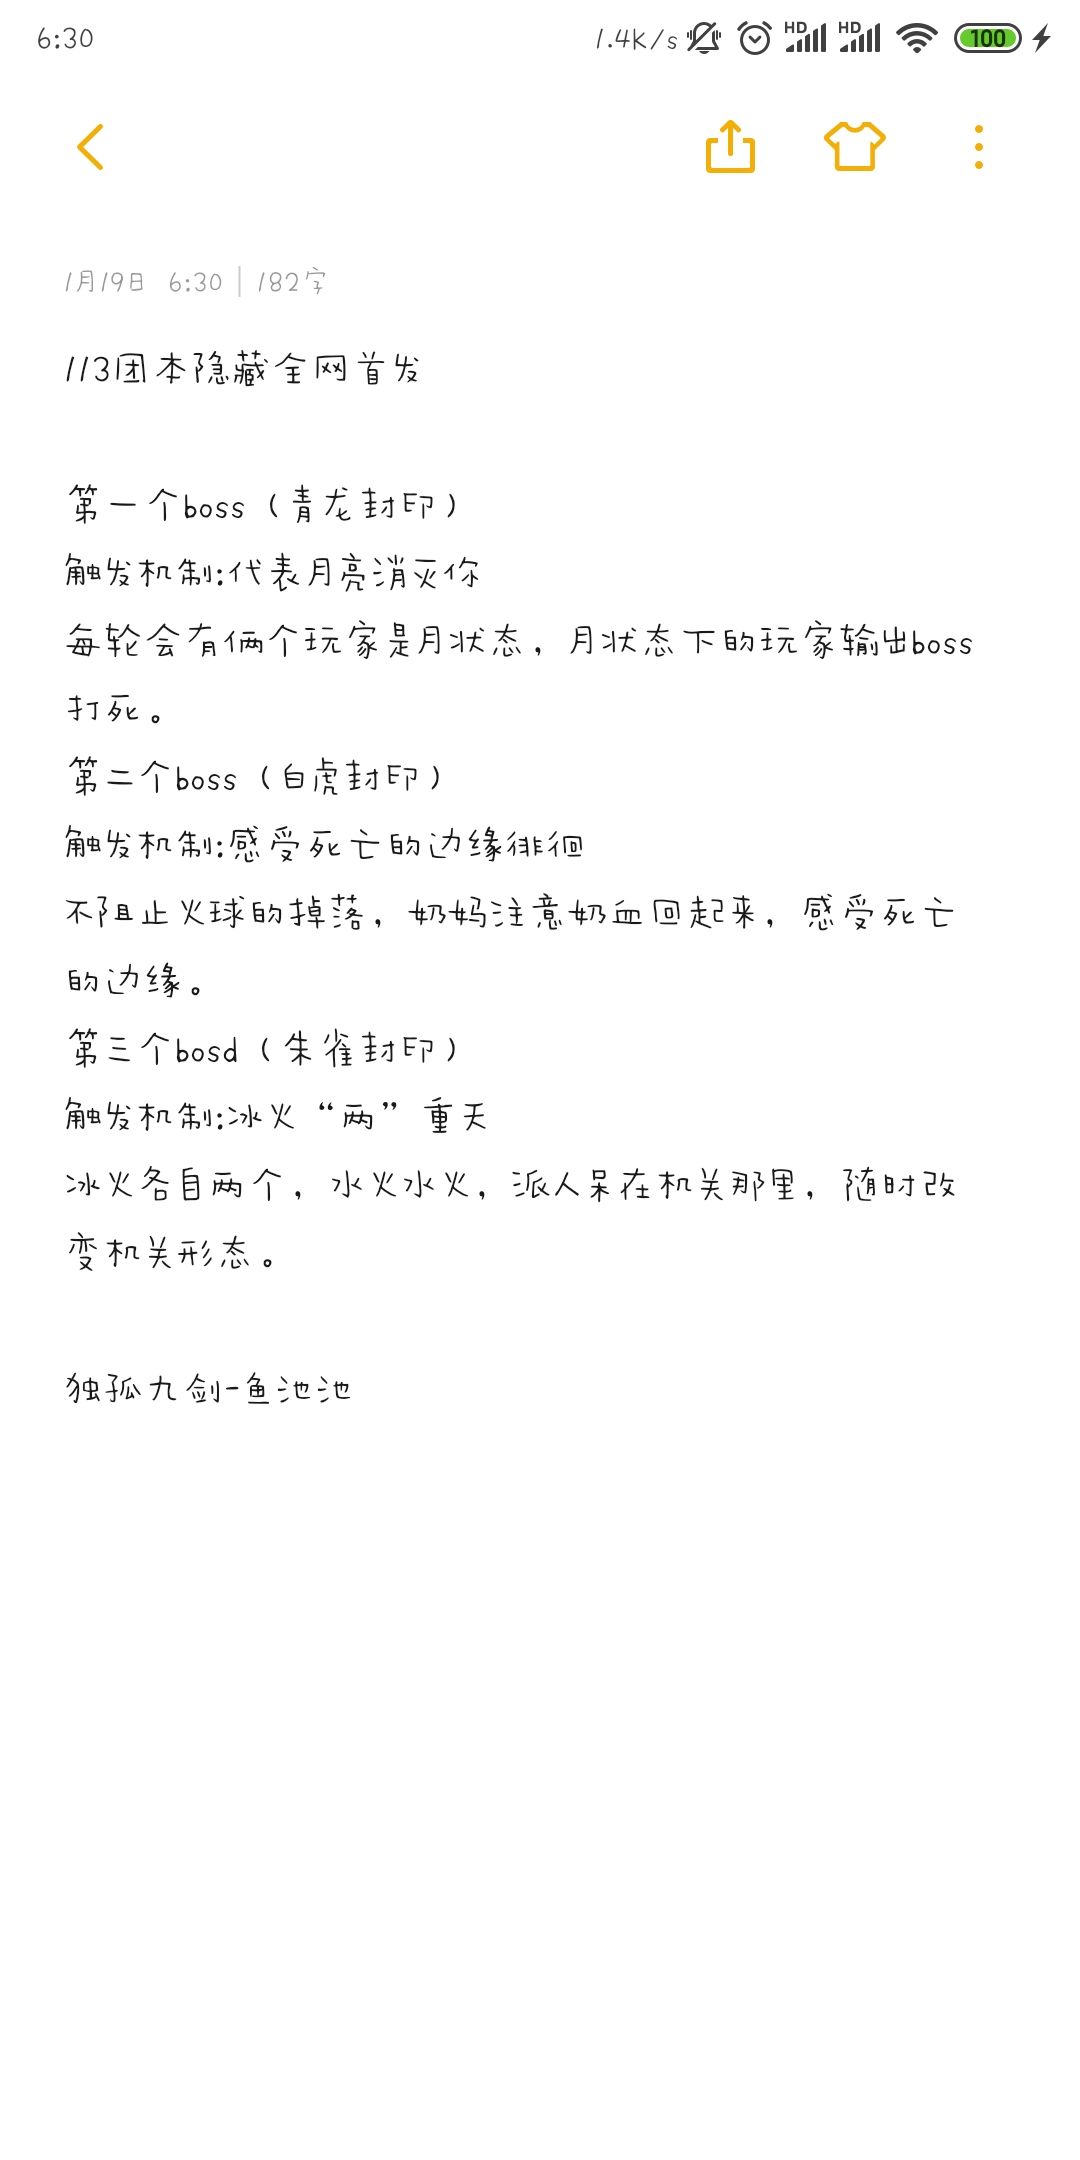 6:30
1.4K/s HD HD 100
1月19日 6:30 | 182字
113团本隐藏全网首发
第一个boss（青龙封印）
触发机制:代表月亮消灭你
每轮会有俩个玩家是月状态，月状态下的玩家输出boss
打死。
第二个boss（白虎封印）
触发机制:感受死亡的边缘徘徊
不阻止火球的掉落，奶妈注意奶血回起来，感受死亡
的边缘。
第三个bosd（朱雀封印）
触发机制:冰火“两”重天
冰火各自两个，水火水火，派人呆在机关那里，随时改
变机关形态。
独孤九剑-鱼池池